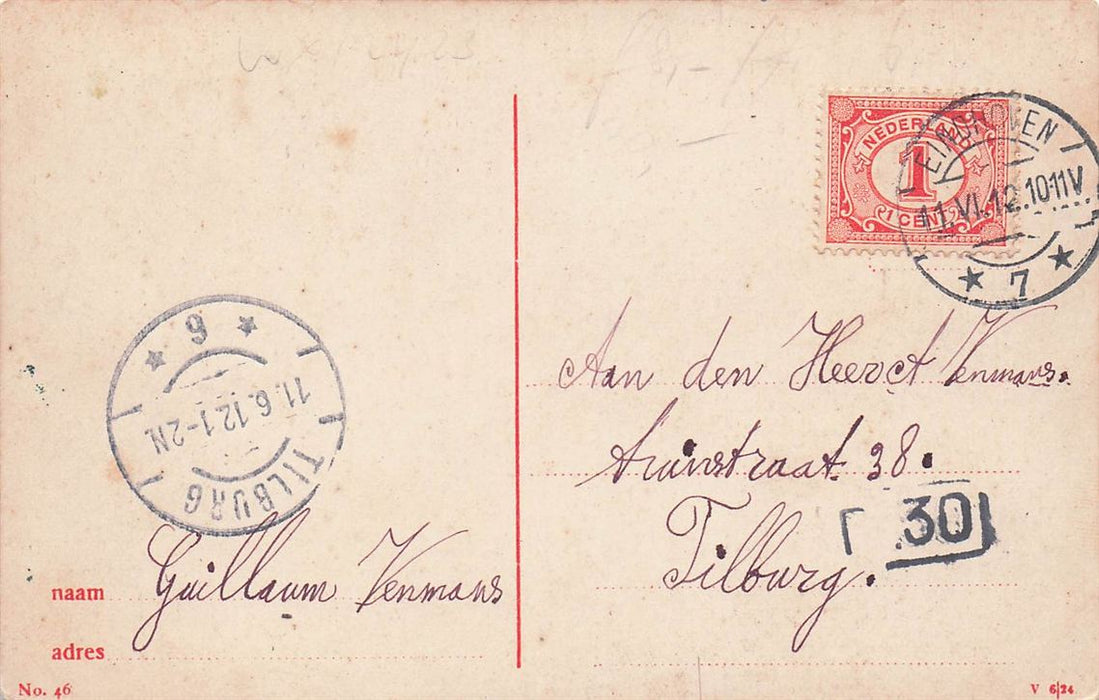 NEDERLAND
1
1 CENT
EINDHOVEN
11.VI.12.10-11V
7
TILBURG
11.6.12.1-2N
9
Aan den Heer Venmans.
straat 38.
30
Tilburg.
naam Guillaum Venmans
adres
No. 46
V 6|24